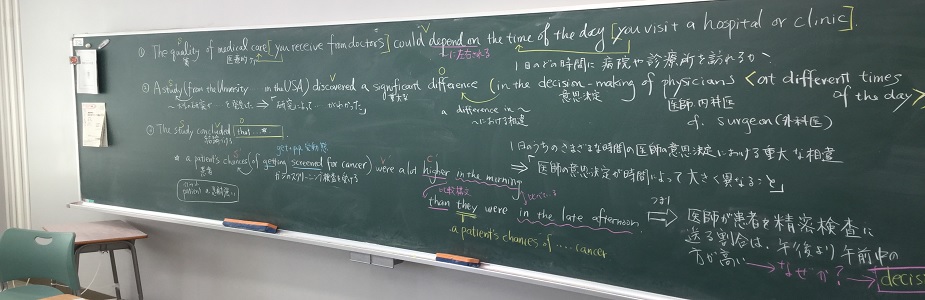 ① The quality of medical care [you receive from doctors] could depend on the time of the day [you visit a hospital or clinic].
質
医療的ケア
に左右される
1日のどの時間に病院や診療所を訪れるか、
② A study (from the University in the USA) discovered a significant difference (in the decision-making of physicians <at different times of the day>
⇒「研究によって…がわかった」
重大な
意思決定
a difference in ~
~における相違
医師 内科医
cf. surgeon (外科医)
③ The study concluded [that ...]
結論づける
1日のうちのさまざまな時間の医師の意思決定における重大な相違
⇒「医師の意思決定が時間によって大きく異なること」
get + p.p. 受動態
* a patient's chances (of getting screened for cancer) were a lot higher in the morning
患者
ガンのスクリーニング検査を受ける
比較構文
than they were in the late afternoon
a patient's chances of ..... cancer
つまり
⇒ 医師が患者を精密検査に
送る割合は、午後より午前中の
方が高い → なぜか? → decis